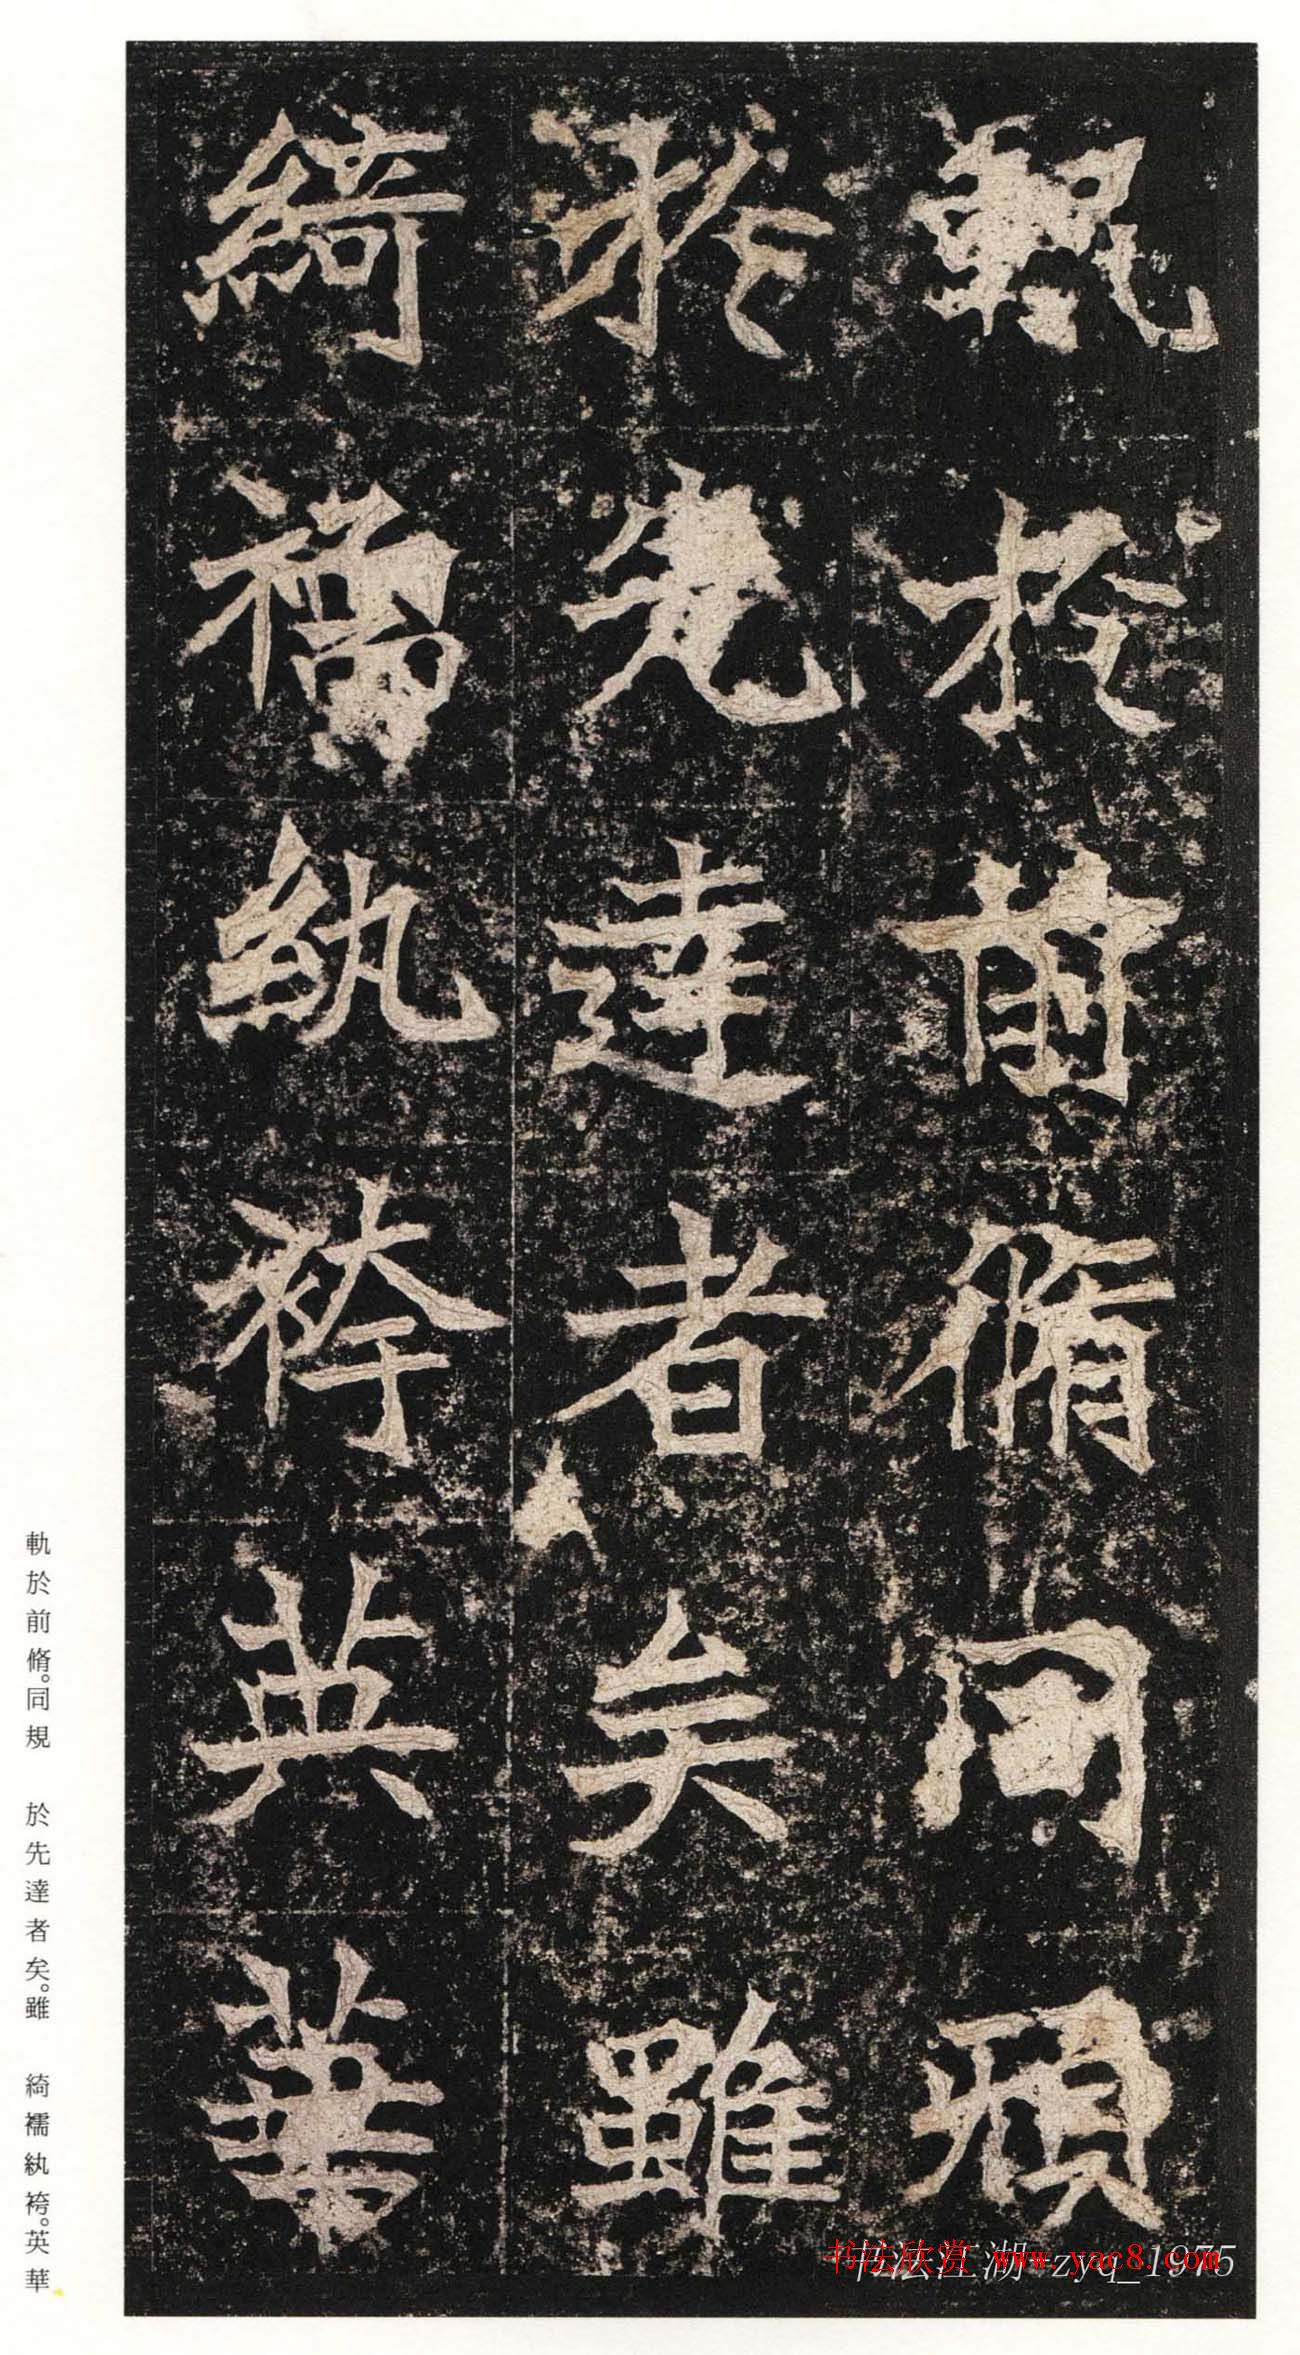 軌於前脩同規
於先達者矣雖
綺襦紈袴英華
軌於前脩。同規 於先達者矣。雖 綺襦紈袴。英華
书法欣赏 www.yac8.com
书法江湖 zyq_1975